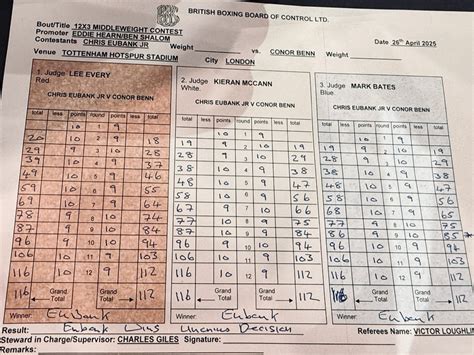 BRITISH BOXING BOARD OF CONTROL LTD.
Bout/Title 12X3 MIDDLEWEIGHT CONTEST
Promoter EDDIE HEARN/BEN SHALOM Date 26th April 2025
Contestants CHRIS EUBANK JR Weight vs. CONOR BENN Weight
Venue TOTTENHAM HOTSPUR STADIUM City LONDON
1. Judge LEE EVERY
Red.
CHRIS EUBANK JR V CONOR BENN
total less points round points less total
10 1 9
20 10 2 9 18
29 9 3 10 28
39 10 4 9 37
49 10 5 9 46
59 10 6 9 55
69 10 7 9 64
78 9 8 10 74
87 9 9 10 84
96 9 10 10 94
106 10 11 9 103
116 10 12 9 112
116 Grand Total Grand Total 112
Winner: Eubank
2. Judge KIERAN MCCANN
White.
CHRIS EUBANK JR V CONOR BENN
total less points round points less total
10 1 9
19 9 2 10 19
28 9 3 10 29
38 10 4 9 38
48 10 5 9 47
58 10 6 9 56
67 9 7 10 66
96 94
106 10 11 9 103
116 10 12 9 112
116 Grand Total Grand Total 112
Winner: Eubank
3. Judge MARK BATES
Blue.
CHRIS EUBANK JR V CONOR BENN
total less points round points less total
10 1 9
19 19
28 29
38 38
48 10 9 47
58 10 9 56
96 94
106 10 11 9 103
116 10 12 9 112
Grand Total Grand Total 112
Winner: Eubank
Result: Eubank Wins Decision Referees Name: VICTOR LOUGHLIN
Steward in Charge/Supervisor: CHARLES GILES Signature:
Remarks: